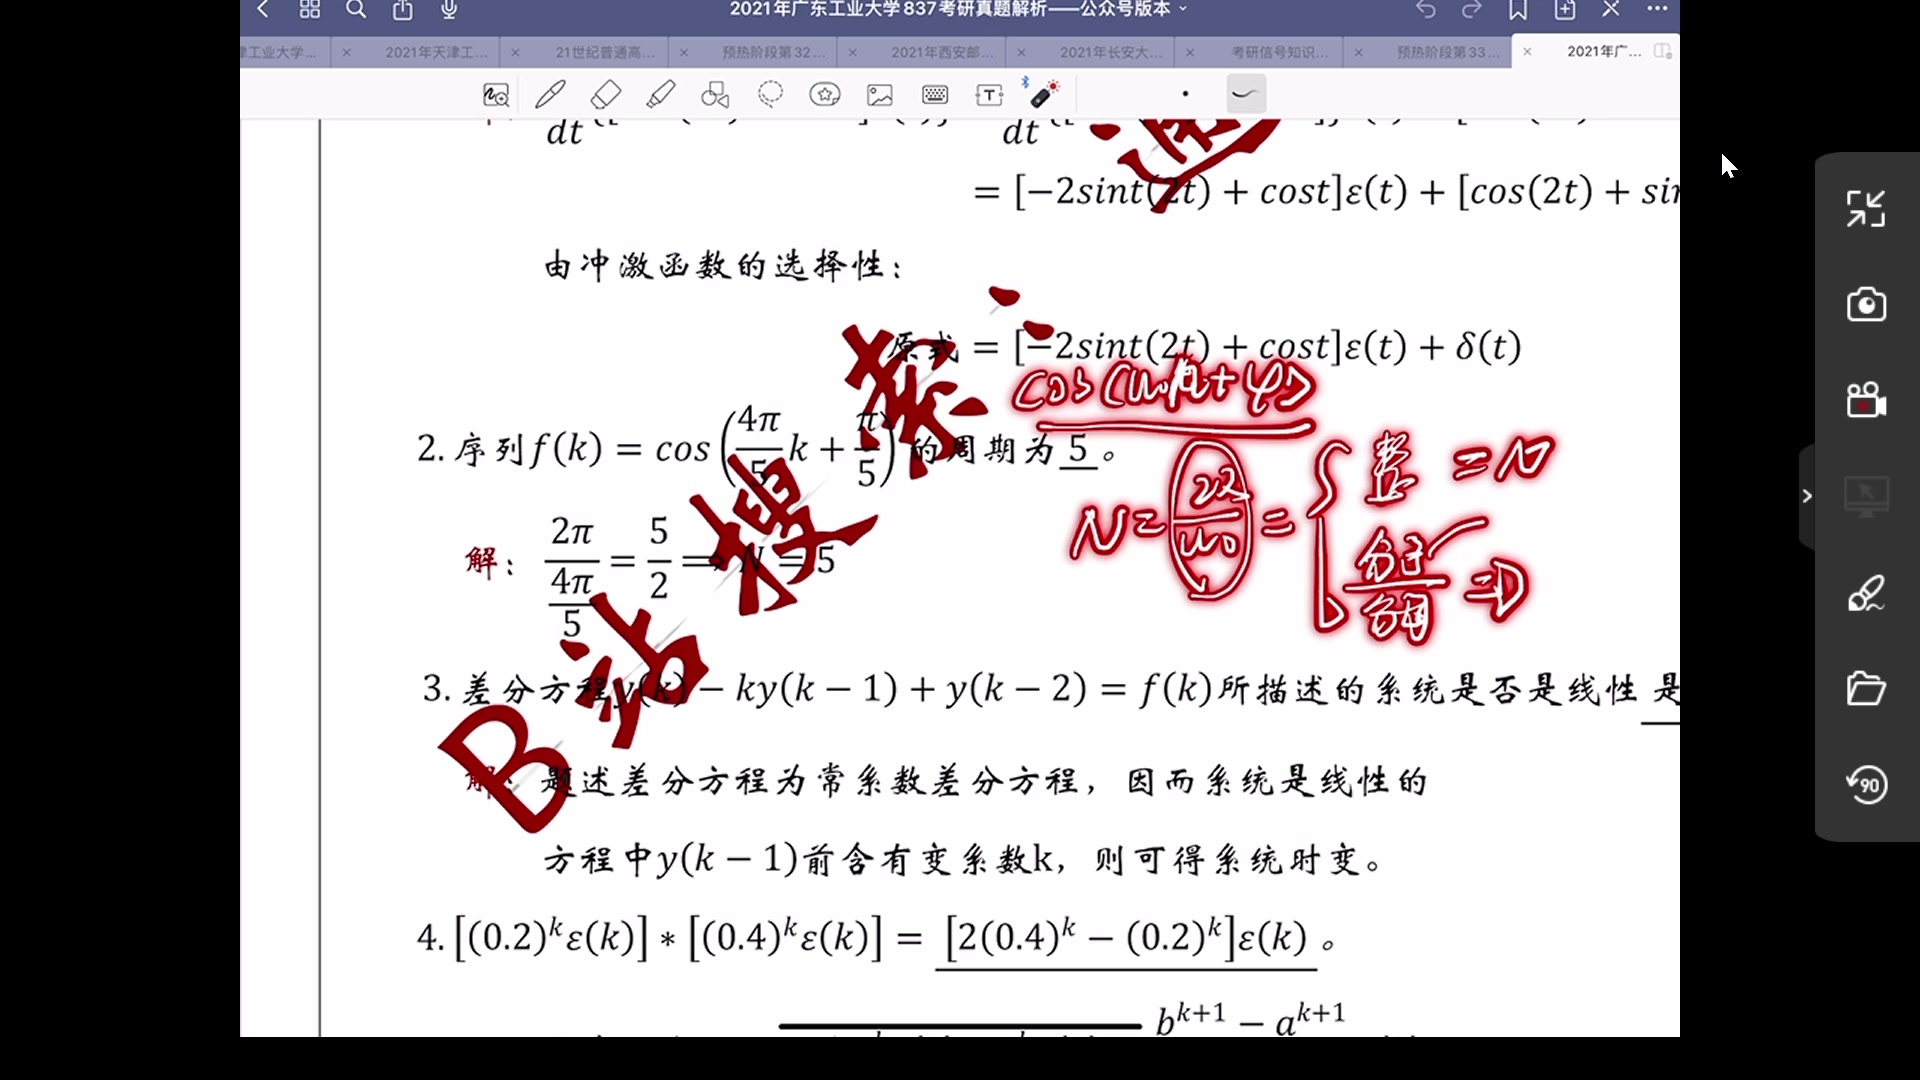 2021年广东工业大学837考研真题解析——公众号版本
津工业大学... 2021年天津工... 21世纪普通高... 预热阶段第32... 2021年西安邮... 2021年长安大... 考研信号知识... 预热阶段第33... 2021年广...
dt dt
= [−2sint(2t) + cost]ε(t) + [cos(2t) + sin
由冲激函数的选择性：
原式 = [−2sint(2t) + cost]ε(t) + δ(t)
cos(ω₀k+φ)
2. 序列f(k) = cos(4π/5 k + π/5)的周期为 5 。
N = 2π/ω₀ = { 整 = N
分子/分母 ⇒
解： 2π/(4π/5) = 5/2 ⟹ N = 5
3. 差分方程y(k) − ky(k − 1) + y(k − 2) = f(k)所描述的系统是否是线性 是
解：题述差分方程为常系数差分方程，因而系统是线性的
方程中y(k − 1)前含有变系数k，则可得系统时变。
4. [(0.2)^k ε(k)] ∗ [(0.4)^k ε(k)] = [2(0.4)^k − (0.2)^k]ε(k) 。
b^{k+1} − a^{k+1}
B站搜索：通
90